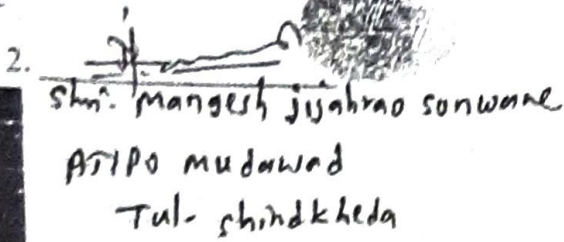 2.
Shri. Mangesh Jijabrao Sonwane
AT/PO Mudawad
Tal- Shindkheda